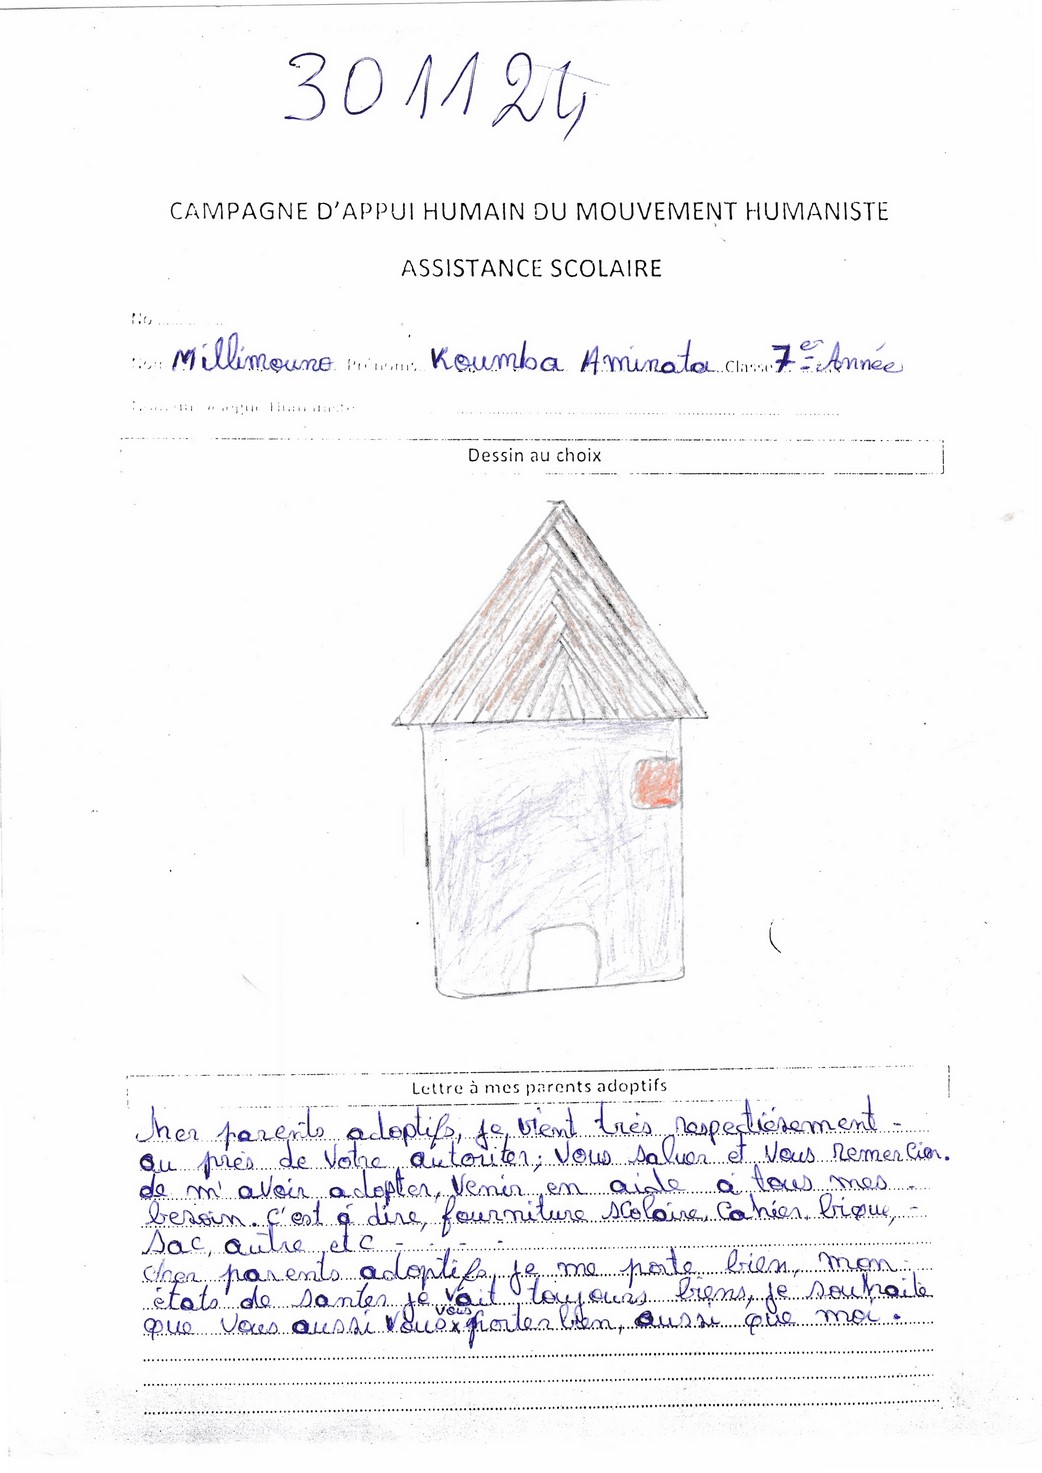 301124
CAMPAGNE D'APPUI HUMAIN DU MOUVEMENT HUMANISTE
ASSISTANCE SCOLAIRE
No
Nom Millimouno Prénoms Koumba Aminata Classe 7è Année
Dessin au choix
Lettre à mes parents adoptifs
cher parents adoptifs, je vient très respectièsement -
au près de votre autoriter; vous saluer et vous remercier.
de m'avoir adopter, venir en aide à tous mes -
besoin. c'est à dire, fourniture scolaire. Cahier. bique, -
Sac, autre etc - - - -
cher parents adoptifs, je me porte bien, mon
états de santer je vait toujours biens, je souhaite
que vous aussi vous vous porter bien, aussi que moi.